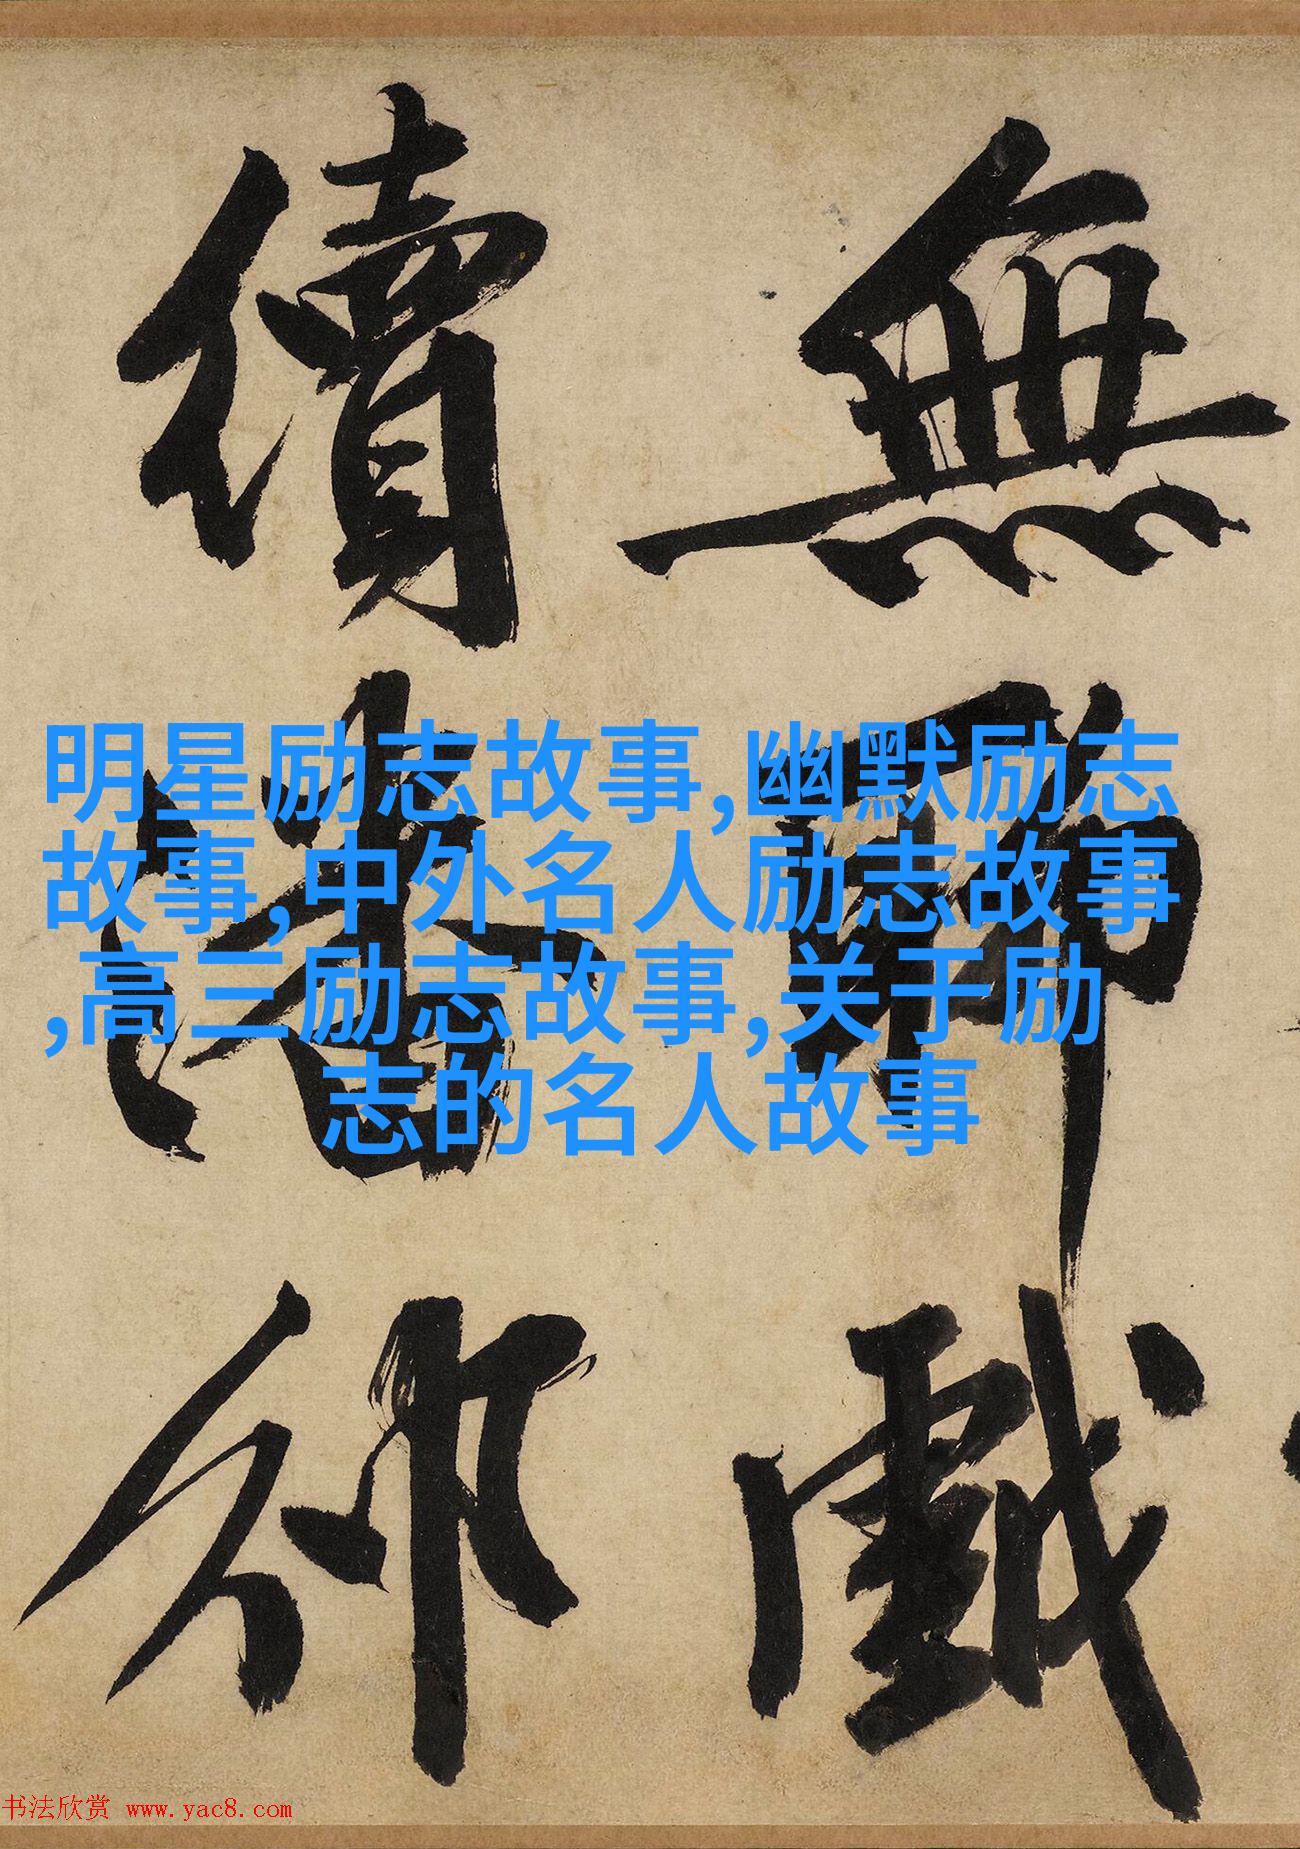 無聊戲
續潘邠
明星励志故事,幽默励志
故事,中外名人励志故事
,高三励志故事,关于励
志的名人故事
书法欣赏 www.yac8.com